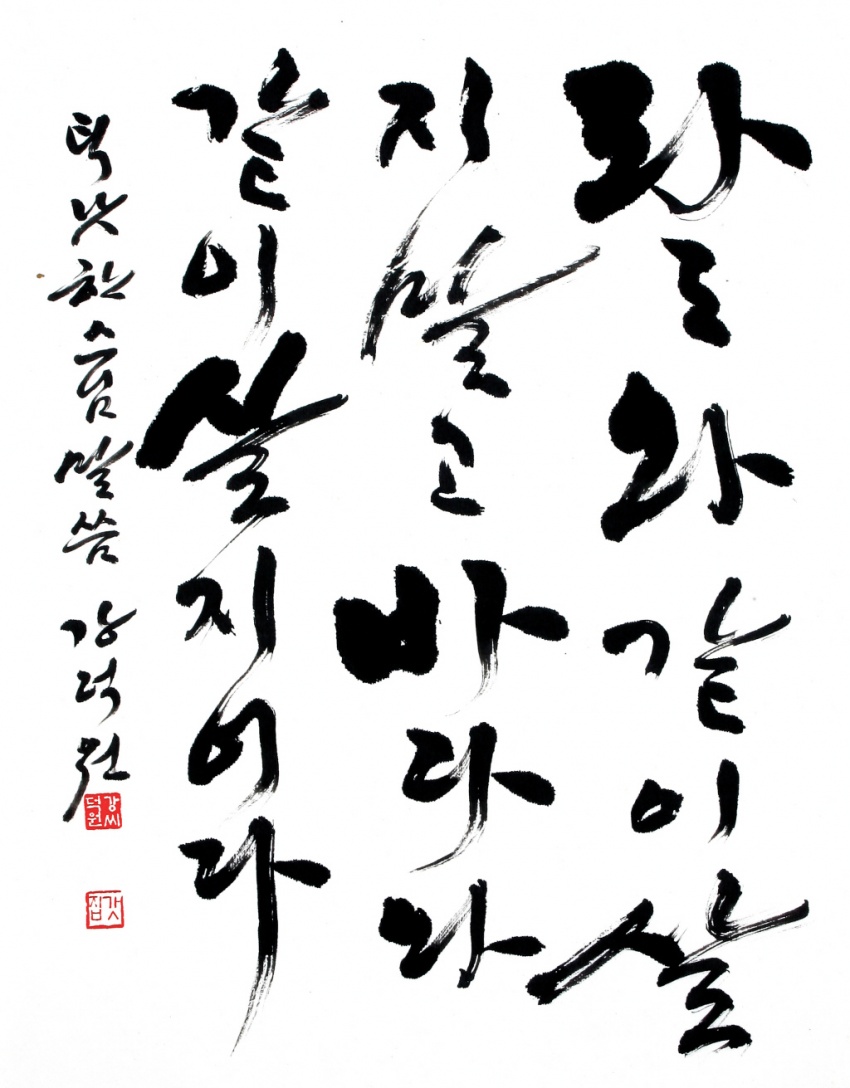 파도와 같이 살
지 말고 바다와
같이 살지어다
틱낫한 스님 말씀 강덕원
강씨
덕원